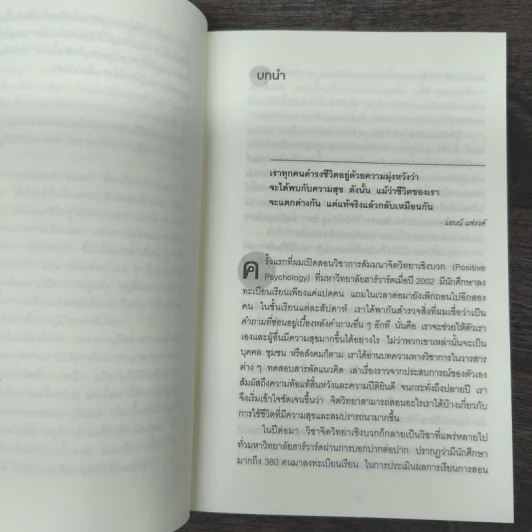 บทนำ
เราทุกคนดำรงชีวิตอยู่ด้วยความมุ่งหวังว่า
จะได้พบกับความสุข ดังนั้น แม้ว่าชีวิตของเรา
จะแตกต่างกัน แต่แท้จริงแล้วกลับเหมือนกัน
- แอนน์ แฟรงค์
ครั้งแรกที่ผมเปิดสอนวิชาการสัมมนาจิตวิทยาเชิงบวก (Positive
Psychology) ที่มหาวิทยาลัยฮาร์วาร์ดเมื่อปี 2002 มีนักศึกษาลง
ทะเบียนเรียนเพียงแค่แปดคน แถมในเวลาต่อมายังเพิกถอนไปอีกสอง
คน ในชั้นเรียนแต่ละสัปดาห์ เราได้พากันสำรวจสิ่งที่ผมเชื่อว่าเป็น
คำถามที่ซ่อนอยู่เบื้องหลังคำถามอื่น ๆ อีกที นั่นคือ เราจะช่วยให้ตัวเรา
เองและผู้อื่นมีความสุขมากขึ้นได้อย่างไร ไม่ว่าพวกเขาเหล่านั้นจะเป็น
บุคคล ชุมชน หรือสังคมก็ตาม เราได้อ่านบทความทางวิชาการในวารสาร
ต่าง ๆ ทดสอบสารพัดแนวคิด เล่าเรื่องราวจากประสบการณ์ของตัวเอง
สัมผัสถึงความท้อแท้สิ้นหวังและความปีติยินดี จนกระทั่งถึงปลายปี เรา
จึงเริ่มเข้าใจชัดเจนขึ้นว่า จิตวิทยาสามารถสอนอะไรเราได้บ้างเกี่ยวกับ
การใช้ชีวิตที่มีความสุขและสมปรารถนามากขึ้น
ในปีต่อมา วิชาจิตวิทยาเชิงบวกก็กลายเป็นวิชาที่แพร่หลายไป
ทั่วมหาวิทยาลัยฮาร์วาร์ดผ่านการบอกปากต่อปาก ปรากฏว่ามีนักศึกษา
มากถึง 380 คนมาลงทะเบียนเรียน ในการประเมินผลการเรียนการสอน